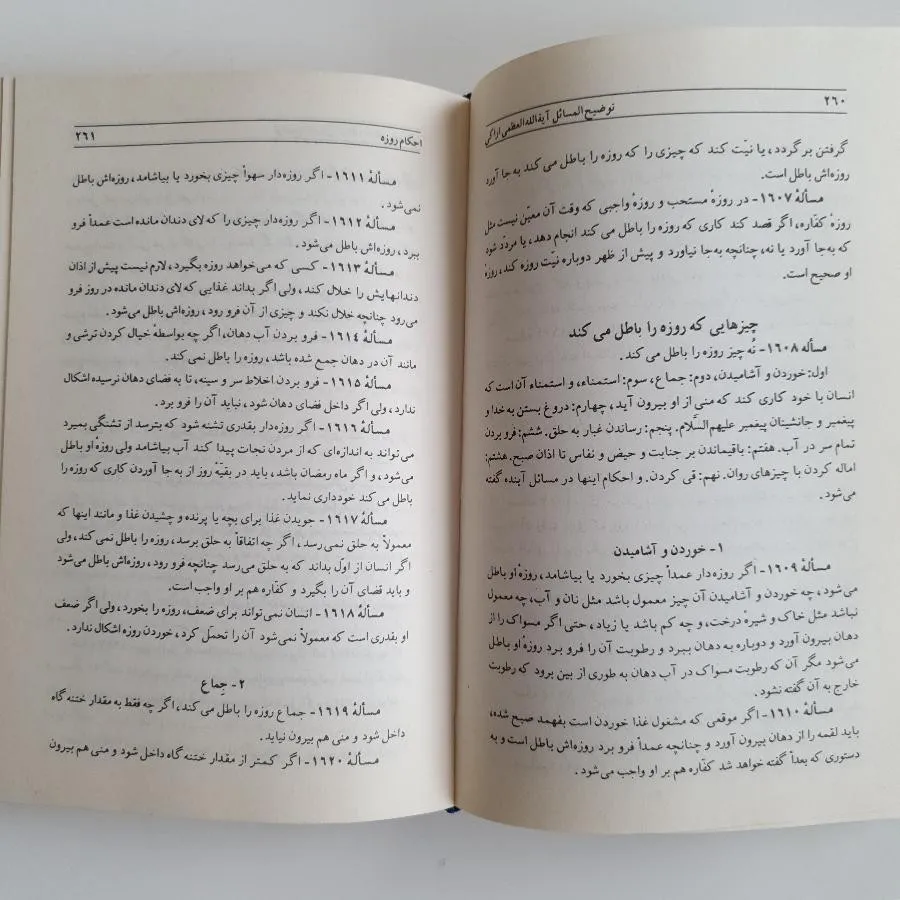 ۲۶۰
توضیح المسائل آیةالله العظمی اراکی
گرفتن برگردد، یا نیّت کند که چیزی را که روزه را باطل می کند به‌جا آورد
روزه‌اش باطل است.
مسألهٔ ۱۶۰۷- در روزهٔ مستحب و روزهٔ واجبی که وقت آن معیّن نیست مثل
روزهٔ کفّاره، اگر قصد کند کاری که روزه را باطل می کند انجام دهد، یا مردّد شود
که به‌جا آورد یا نه، چنانچه به‌جا نیاورد و پیش از ظهر دوباره نیّت روزه کند، روزهٔ
او صحیح است.
چیزهایی که روزه را باطل می کند
مسأله ۱۶۰۸- نُه چیز روزه را باطل می کند.
اول: خوردن و آشامیدن، دوم: جماع، سوم: استمناء، و استمناء آن است که
انسان با خود کاری کند که منی از او بیرون آید، چهارم: دروغ بستن به خدا و
پیغمبر و جانشینان پیغمبر علیهم السَّلام. پنجم: رساندن غبار به حلق. ششم: فرو بردن
تمام سر در آب. هفتم: باقیماندن بر جنابت و حیض و نفاس تا اذان صبح. هشتم:
اماله کردن با چیزهای روان. نهم: قی کردن. و احکام اینها در مسائل آینده گفته
می‌شود.
۱- خوردن و آشامیدن
مسألهٔ ۱۶۰۹- اگر روزه‌دار عمداً چیزی بخورد یا بیاشامد، روزهٔ او باطل
می‌شود، چه خوردن و آشامیدن آن چیز معمول باشد مثل نان و آب، چه معمول
نباشد مثل خاک و شیرهٔ درخت، و چه کم باشد یا زیاد، حتی اگر مسواک را از
دهان بیرون آورد و دوباره به دهان ببرد و رطوبت آن را فرو برد روزهٔ او باطل
می‌شود مگر آن که رطوبت مسواک در آب دهان به طوری از بین برود که رطوبت
خارج به آن گفته نشود.
مسألهٔ ۱۶۱۰- اگر موقعی که مشغول غذا خوردن است بفهمد صبح شده،
باید لقمه را از دهان بیرون آورد و چنانچه عمداً فرو برد روزه‌اش باطل است و به
دستوری که بعداً گفته خواهد شد کفّاره هم بر او واجب می‌شود.
احکام روزه
۲۶۱
مسألهٔ ۱۶۱۱- اگر روزه‌دار سهواً چیزی بخورد یا بیاشامد، روزه‌اش باطل
نمی‌شود.
مسألهٔ ۱۶۱۲- اگر روزه‌دار چیزی را که لای دندان مانده است عمداً فرو
ببرد، روزه‌اش باطل می‌شود.
مسألهٔ ۱۶۱۳- کسی که می‌خواهد روزه بگیرد، لازم نیست پیش از اذان
دندانهایش را خلال کند، ولی اگر بداند غذایی که لای دندان مانده در روز فرو
می‌رود چنانچه خلال نکند و چیزی از آن فرو رود، روزه‌اش باطل می‌شود.
مسألهٔ ۱۶۱۴- فرو بردن آب دهان، اگر چه بواسطهٔ خیال کردن ترشی و
مانند آن در دهان جمع شده باشد، روزه را باطل نمی‌کند.
مسألهٔ ۱۶۱۵- فرو بردن اخلاط سر و سینه، تا به فضای دهان نرسیده اشکال
ندارد، ولی اگر داخل فضای دهان شود، نباید آن را فرو برد.
مسألهٔ ۱۶۱۶- اگر روزه‌دار بقدری تشنه شود که بترسد از تشنگی بمیرد
می‌تواند به اندازه‌ای که از مردن نجات پیدا کند آب بیاشامد ولی روزهٔ او باطل
می‌شود، و اگر ماه رمضان باشد، باید در بقیّهٔ روز از به‌جا آوردن کاری که روزه را
باطل می کند خودداری نماید.
مسألهٔ ۱۶۱۷- جویدن غذا برای بچه یا پرنده و چشیدن غذا و مانند اینها که
معمولاً به حلق نمی‌رسد، اگر چه اتفاقاً به حلق برسد، روزه را باطل نمی کند، ولی
اگر انسان از اوّل بداند که به حلق می‌رسد چنانچه فرو رود، روزه‌اش باطل می‌شود
و باید قضای آن را بگیرد و کفّاره هم بر او واجب است.
مسألهٔ ۱۶۱۸- انسان نمی‌تواند برای ضعف، روزه را بخورد، ولی اگر ضعف
او بقدری است که معمولاً نمی‌شود آن را تحمّل کرد، خوردن روزه اشکال ندارد.
۲- جِماع
مسألهٔ ۱۶۱۹- جماع روزه را باطل می‌کند، اگر چه فقط به مقدار ختنه گاه
داخل شود و منی هم بیرون نیاید.
مسألهٔ ۱۶۲۰- اگر کمتر از مقدار ختنه گاه داخل شود و منی هم بیرون